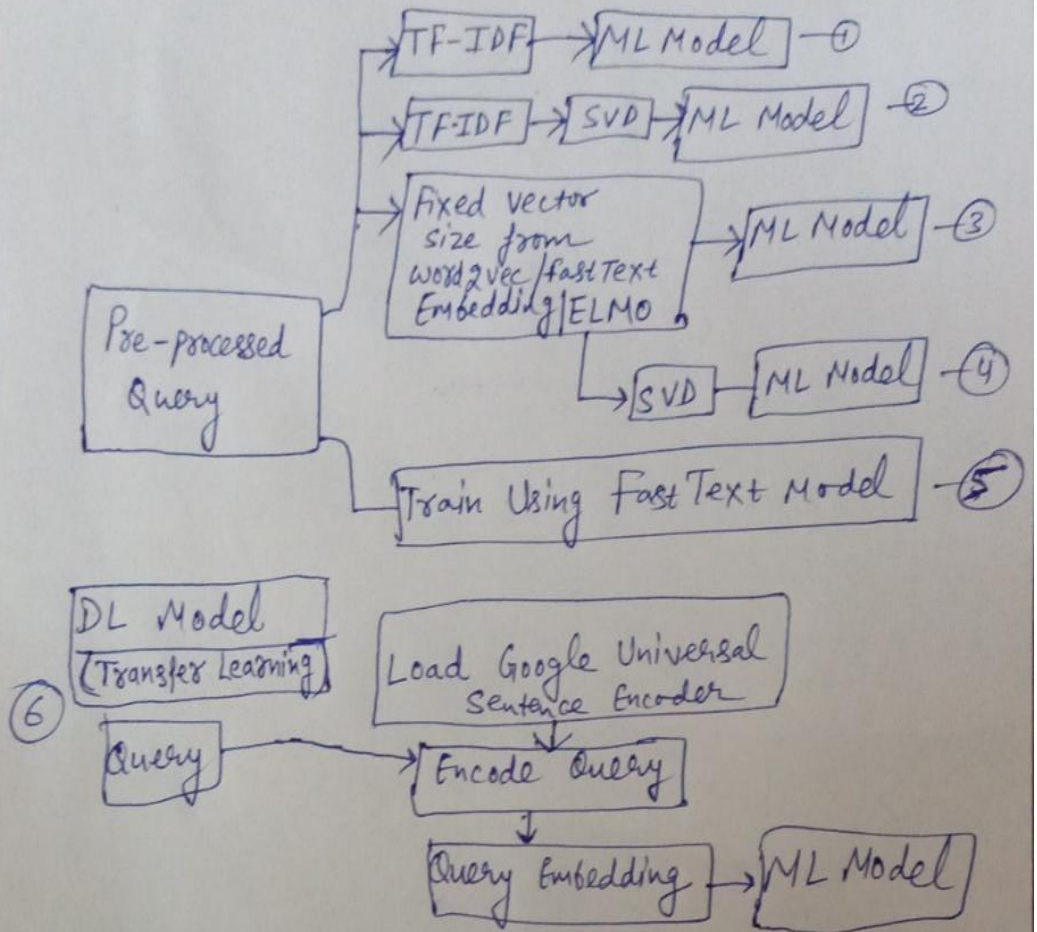 TF-IDF ML Model ①
TF-IDF SVD ML Model ②
Fixed vector
size from
word2vec/fastText
Embedding/ELMO
ML Model ③
Pre-processed
Query
SVD ML Model ④
Train Using FastText Model ⑤
DL Model
(Transfer Learning)
⑥
Load Google Universal
Sentence Encoder
Query
Encode Query
Query Embedding ML Model